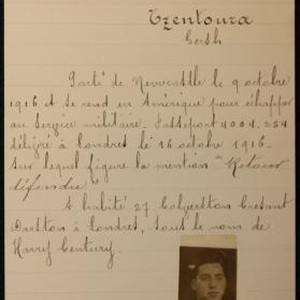 Tzentoura
Gersh
Parti de Newcastle le 9 octobre
1916 et se rend en Amérique pour échapper
au service militaire. Passeport 4004.254
délivré à Londres le 16 octobre 1916.
sur lequel figure la mention "Retour
défendu".
A habité 27
à Londres, sous le nom de
Harry Century.